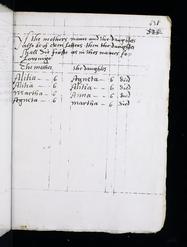 638
If the mothers name and the daughters
also be of even letters then the daughter
shall die first as in thes names fo-
lowinge
The mother the daughter
Alitia – 6 Agneta – 6 died
Alitia – 6 Alitia – 6 died
Martha – 6 Anna – 6 died
Agneta – 6 Martha – 6 died